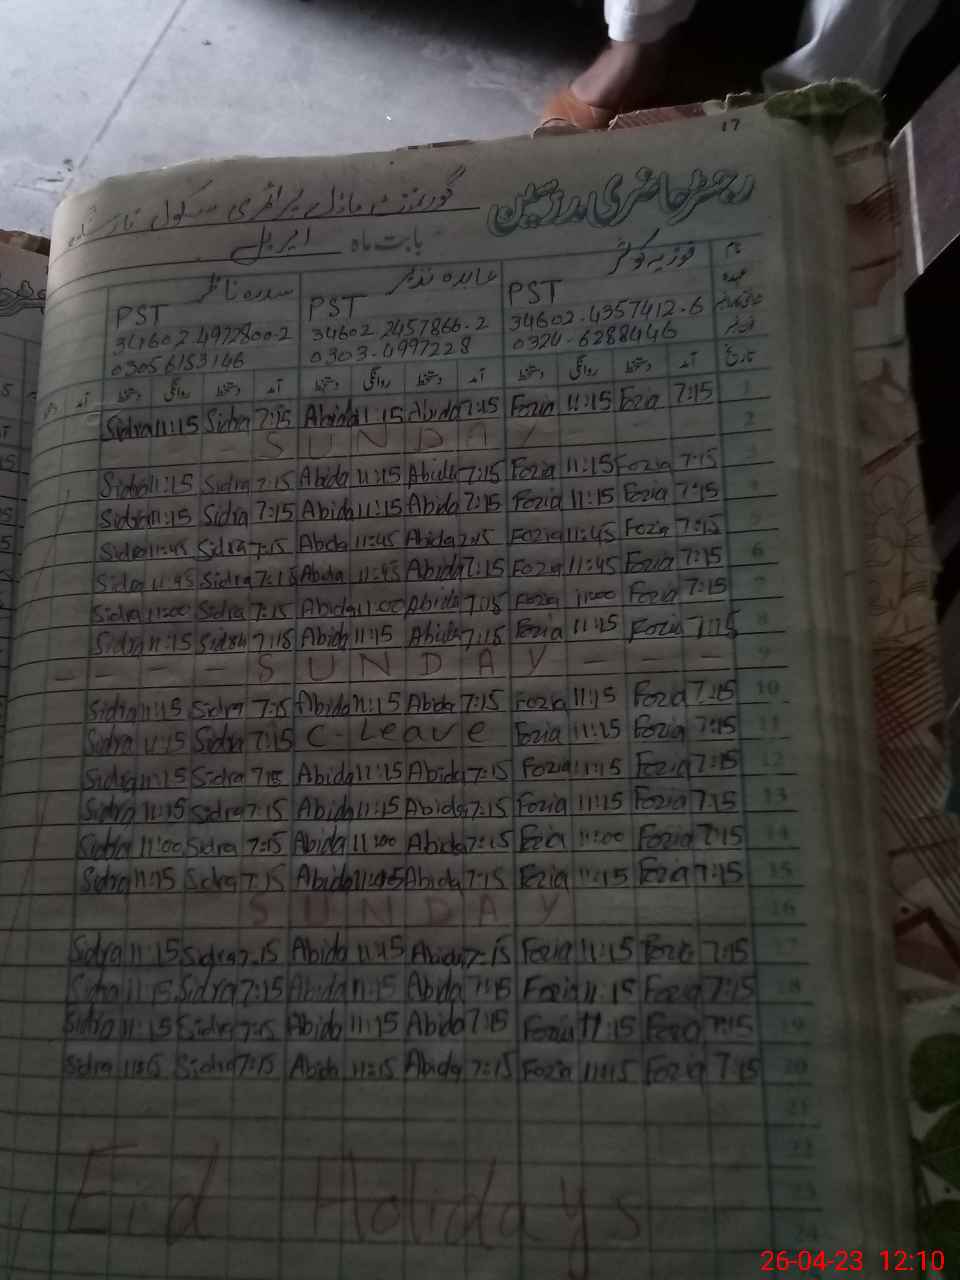 17
رجسٹر حاضری مدرسین گورنمنٹ ماڈل پرائمری سکول
بابت ماہ اپریل
نام فوزیہ کوثر عابدہ نذیر سدرہ ناظر
عہدہ PST PST PST
34602-4357412-6 34602-2457866-2 34602-4972800-2
0324-6288446 0303-4997228 03056153146
تاریخ آمد دستخط روانگی دستخط آمد دستخط روانگی دستخط آمد دستخط روانگی دستخط آمد
Sidra 11:15 Sidra 7:15 Abida 11:15 Abida 7:15 Fozia 11:15 Fozia 7:15 1
SUNDAY 2
Sidra 11:15 Sidra 7:15 Abida 11:15 Abida 7:15 Fozia 11:15 Fozia 7:15 3
Sidra 11:15 Sidra 7:15 Abida 11:15 Abida 7:15 Fozia 11:15 Fozia 7:15 4
Sidra 11:45 Sidra 7:15 Abida 11:45 Abida 7:15 Fozia 11:45 Fozia 7:15 5
Sidra 11:45 Sidra 7:15 Abida 11:45 Abida 7:15 Fozia 11:45 Fozia 7:15 6
Sidra 11:00 Sidra 7:15 Abida 11:00 Abida 7:15 Fozia 11:00 Fozia 7:15 7
Sidra 11:15 Sidra 7:15 Abida 11:15 Abida 7:15 Fozia 11:15 Fozia 7:15 8
- - - - SUNDAY - - - - 9
Sidra 11:15 Sidra 7:15 Abida 11:15 Abida 7:15 Fozia 11:15 Fozia 7:15 10
Sidra 11:15 Sidra 7:15 C-Leave Fozia 11:15 Fozia 7:15 11
Sidra 11:15 Sidra 7:15 Abida 11:15 Abida 7:15 Fozia 11:15 Fozia 7:15 12
Sidra 11:15 Sidra 7:15 Abida 11:15 Abida 7:15 Fozia 11:15 Fozia 7:15 13
Sidra 11:00 Sidra 7:15 Abida 11:00 Abida 7:15 Fozia 11:00 Fozia 7:15 14
Sidra 11:15 Sidra 7:15 Abida Abida 7:15 Fozia 11:15 Fozia 7:15 15
SUNDAY 16
Sidra 11:15 Sidra 7:15 Abida 11:15 Abida 7:15 Fozia 11:15 Fozia 7:15 17
Sidra 11:15 Sidra 7:15 Abida 11:15 Abida 7:15 Fozia 11:15 Fozia 7:15 18
Sidra 11:15 Sidra 7:15 Abida 11:15 Abida 7:15 Fozia 11:15 Fozia 7:15 19
Sidra 11:15 Sidra 7:15 Abida 11:15 Abida 7:15 Fozia 11:15 Fozia 7:15 20
21
22
Eid Holidays 23
24
26-04-23 12:10